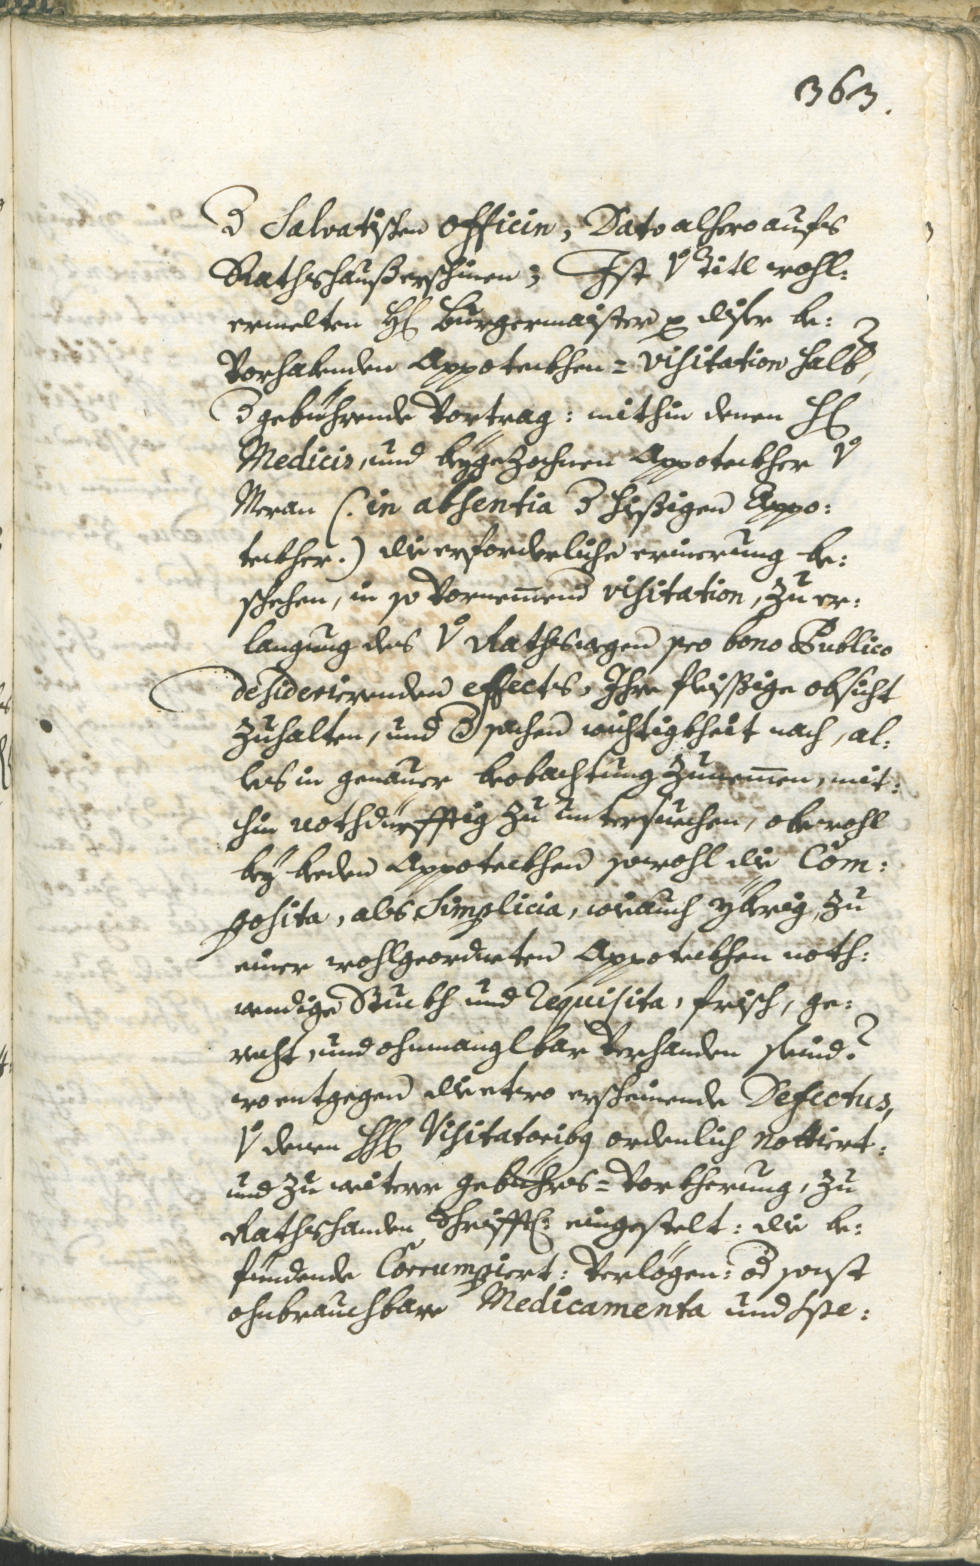 363.
der Salvatischen Officin, Dato alhero aufs
Rathshauß erschinen; Ist von Titl wohl:
ermelten H: Burgermaister diser be:
vorhabenden Appoteckhen=visitation halb,
der gebührende Vortrag: mithin denen HH:
Medicis, und beygezochnen Appoteckher von
Meran (: in absentia der hießigen Appo:
teckher.) die erforderliche erinerung be:
schehen, in so vornemmend visitation, zu er:
langung des von Raths wegen pro bono Publico
desiderierenden effects, Ihre fleissige obsicht
zuhalten, und der sachen wichtigkheit nach, al:
les in genauer beobachtung zunemmen, mit:
hin nothdürfftig zu untersuechen, ob wohl
bey beden Appoteckhen sowohl die Com:
posita, als Simplicia, wie auch yberig, zu
einer wohlgeordneten Appoteckhen noth:
wendige Stuckh und Requisita, frisch, ge:
recht, und ohnmanglbar verhanden seind?
wo entgegen die etwo erscheinende Defectus,
von denen HH: Visitatoribus ordenlich nottiert:
und zu weiterer gebührs=vorkherung, zu
Raths handen schrifftl: eingestelt: die be:
findende Corrumpiert: verlögen: od sonst
ohnbrauchbare Medicamenta und Spe: